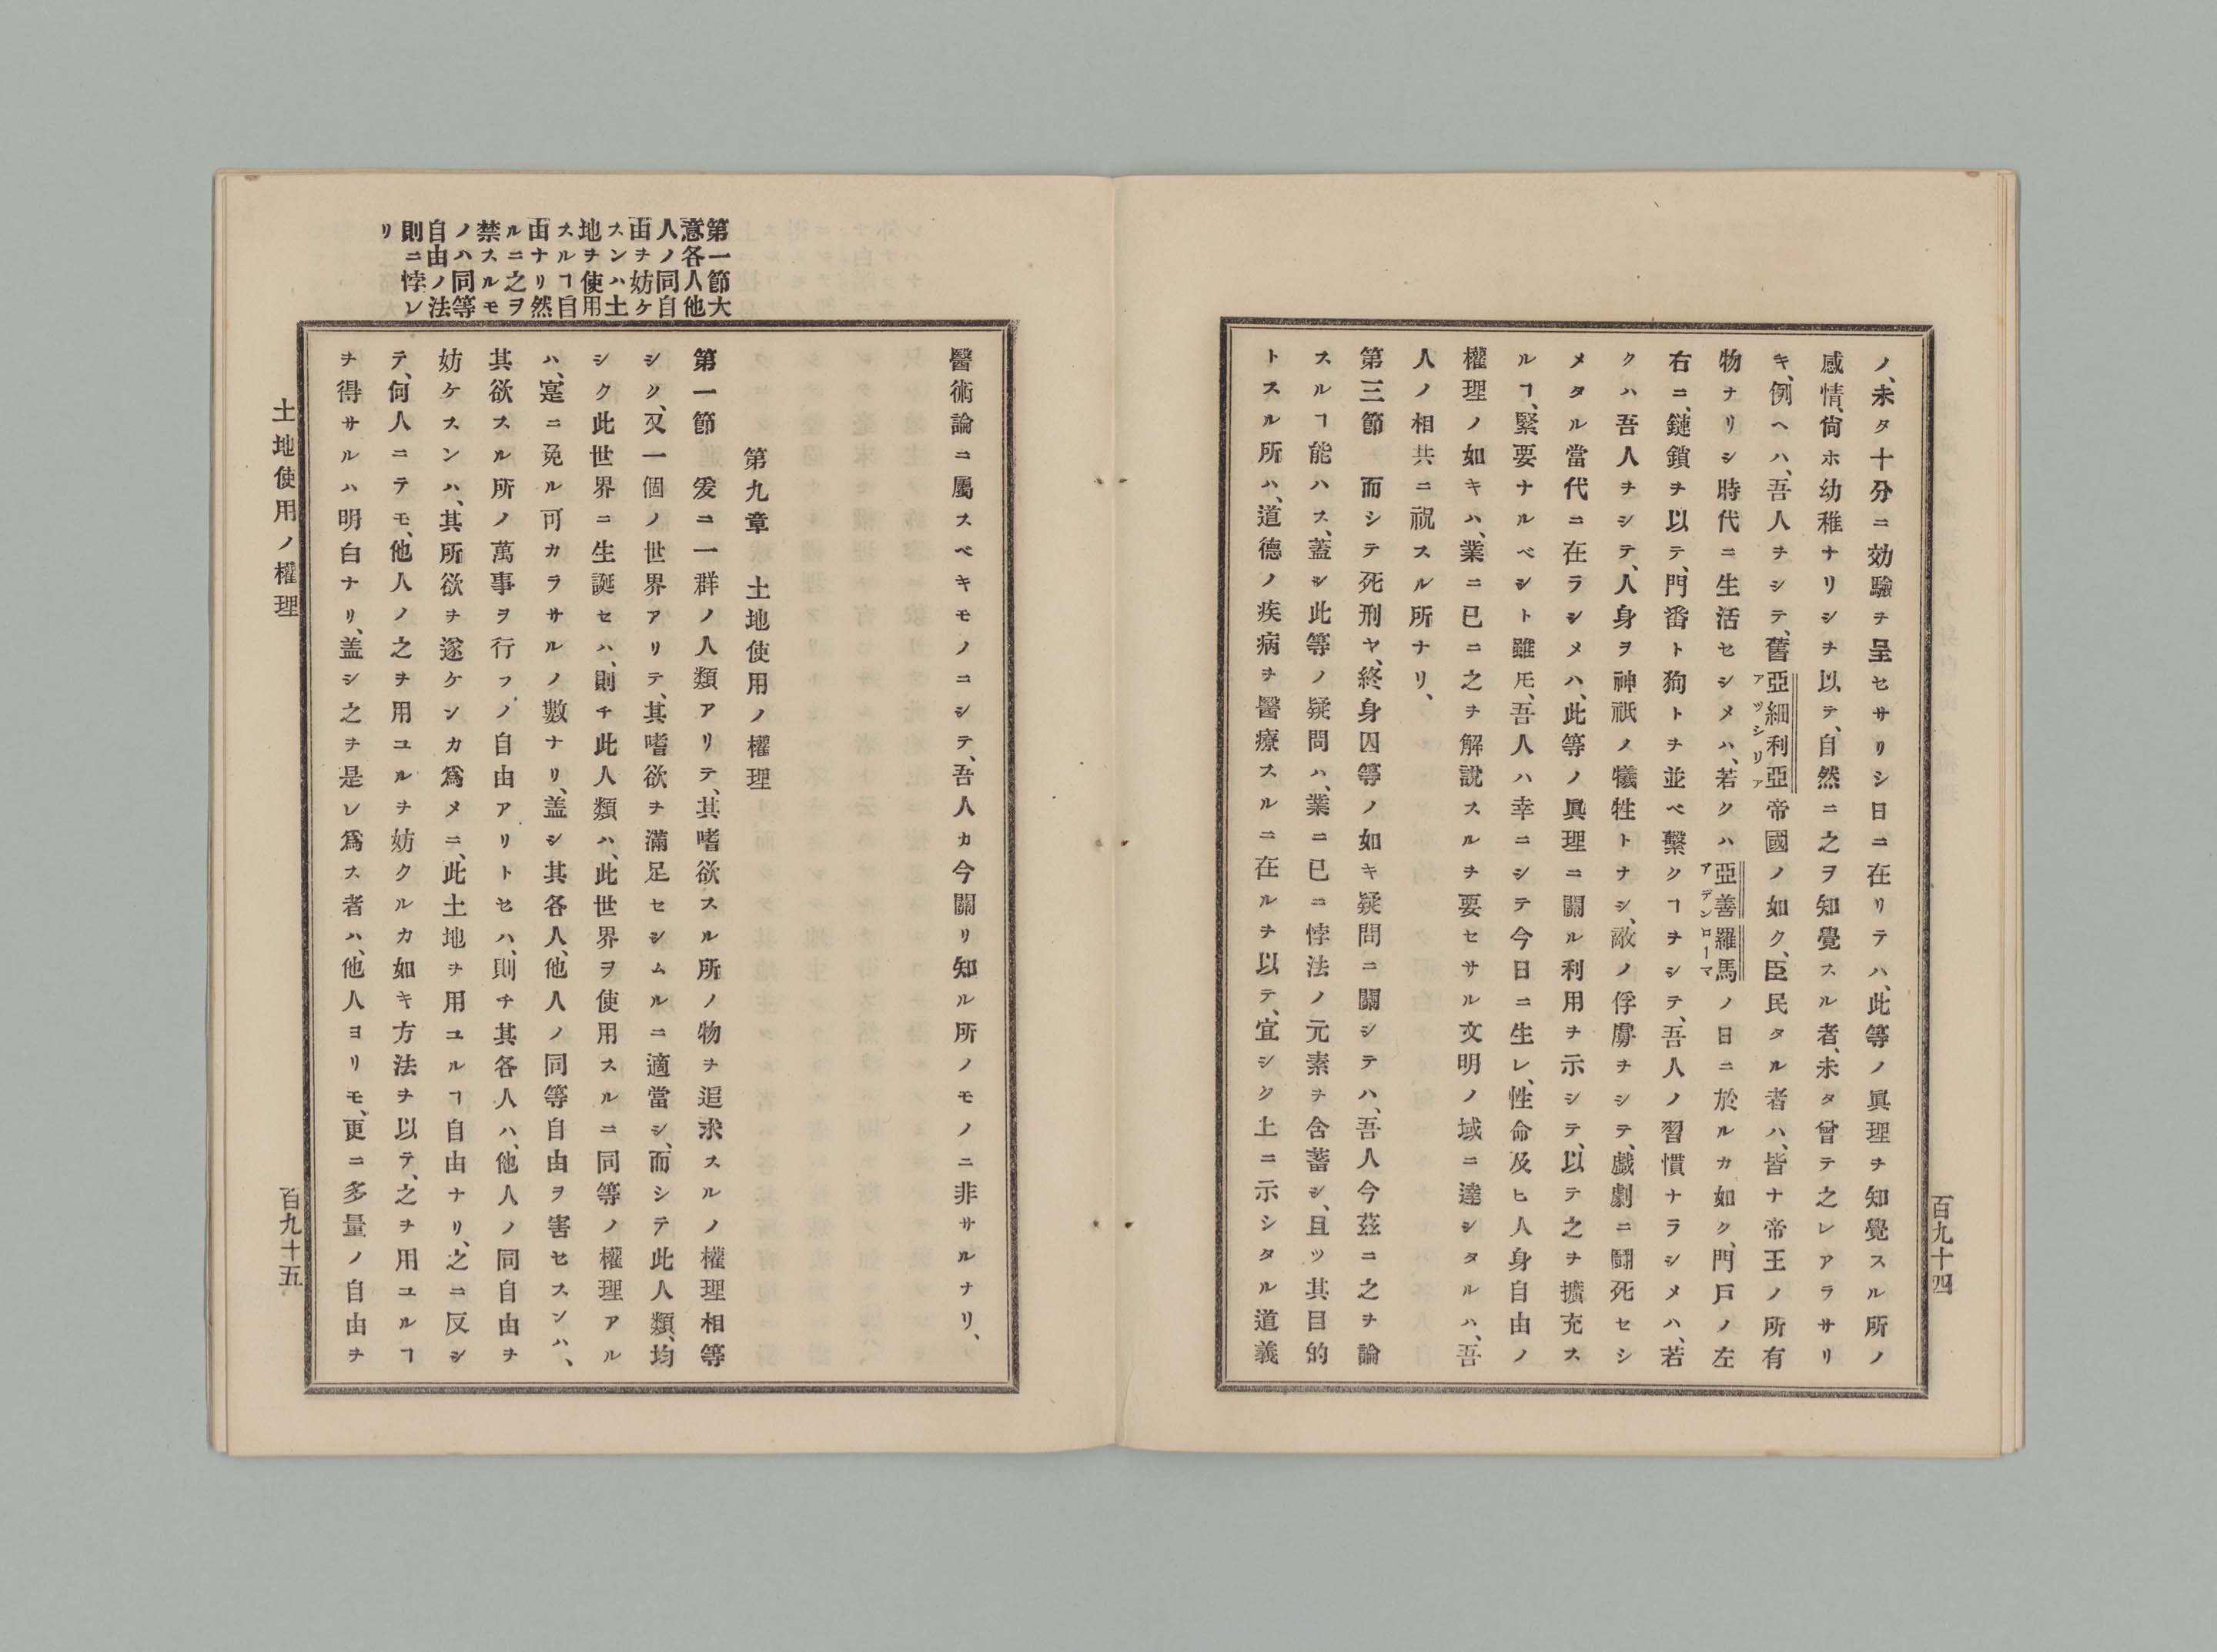 ノ、未タ十分ニ効驗ヲ呈セサリシ日ニ在リテハ、此等ノ眞理ヲ知覺スル所ノ
感情、尙ホ幼稚ナリシヲ以テ、自然ニ之ヲ知覺スル者、未タ曾テ之レアラサリ
キ、例ヘハ、吾人ヲシテ、舊亞細利亞帝國ノ如ク、臣民タル者ハ、皆ナ帝王ノ所有
アッシリア
物ナリシ時代ニ生活セシメハ、若クハ亞善羅馬ノ日ニ於ルカ如ク、門戸ノ左
アデンローマ
右ニ、鏈鎖ヲ以テ、門番ト狗トヲ並ベ繫クヿヲシテ、吾人ノ習慣ナラシメハ、若
クハ吾人ヲシテ、人身ヲ神祇ノ犧牲トナシ、敵ノ俘虜ヲシテ、戲劇ニ鬪死セシ
メタル當代ニ在ラシメハ、此等ノ眞理ニ關ル利用ヲ示シテ、以テ之ヲ擴充ス
ルヿ、緊要ナルベシト雖𪜈、吾人ハ幸ニシテ今日ニ生レ、性命及ヒ人身自由ノ
權理ノ如キハ、業ニ已ニ之ヲ解說スルヲ要セサル文明ノ域ニ達シタルハ、吾
人ノ相共ニ祝スル所ナリ、
第三節 而シテ死刑ヤ、終身囚等ノ如キ疑問ニ關シテハ、吾人今茲ニ之ヲ論
スルヿ能ハス、蓋シ此等ノ疑問ハ、業ニ已ニ悖法ノ元素ヲ含蓄シ、且ツ其目的
トスル所ハ、道德ノ疾病ヲ醫療スルニ在ルヲ以テ、宜シク上ニ示シタル道義
百九十四
醫術論ニ屬スベキモノニシテ、吾人カ今關リ知ル所ノモノニ非サルナリ、
第九章 土地使用ノ權理
第一節 爰ニ一群ノ人類アリテ、其嗜欲スル所ノ物ヲ追求スルノ權理相等
シク、又一個ノ世界アリテ、其嗜欲ヲ滿足セシムルニ適當シ、而シテ此人類、均
シク此世界ニ生誕セハ、則チ此人類ハ、此世界ヲ使用スルニ同等ノ權理アル
ハ、寔ニ免ル可カラサルノ數ナリ、蓋シ其各人、他人ノ同等自由ヲ害セスンハ、
其欲スル所ノ萬事ヲ行フノ自由アリトセハ、則チ其各人ハ、他人ノ同自由ヲ
妨ケスンハ、其所欲ヲ遂ケンカ爲メニ、此土地ヲ用ユルヿ自由ナリ、之ニ反シ
テ、何人ニテモ、他人ノ之ヲ用ユルヲ妨クルカ如キ方法ヲ以テ、之ヲ用ユルヿ
ヲ得サルハ明白ナリ、盖シ之ヲ是レ爲ス者ハ、他人ヨリモ、更ニ多量ノ自由ヲ
第一節大
意各人他
人ノ同自
由ヲ妨ケ
スンハ土
地ヲ使用
スルヿ自
由ナリ然
ルニ之ヲ
禁スルモ
ノハ同等
自由ノ法
則ニ悖レ
リ
土地使用ノ權理
百九十五